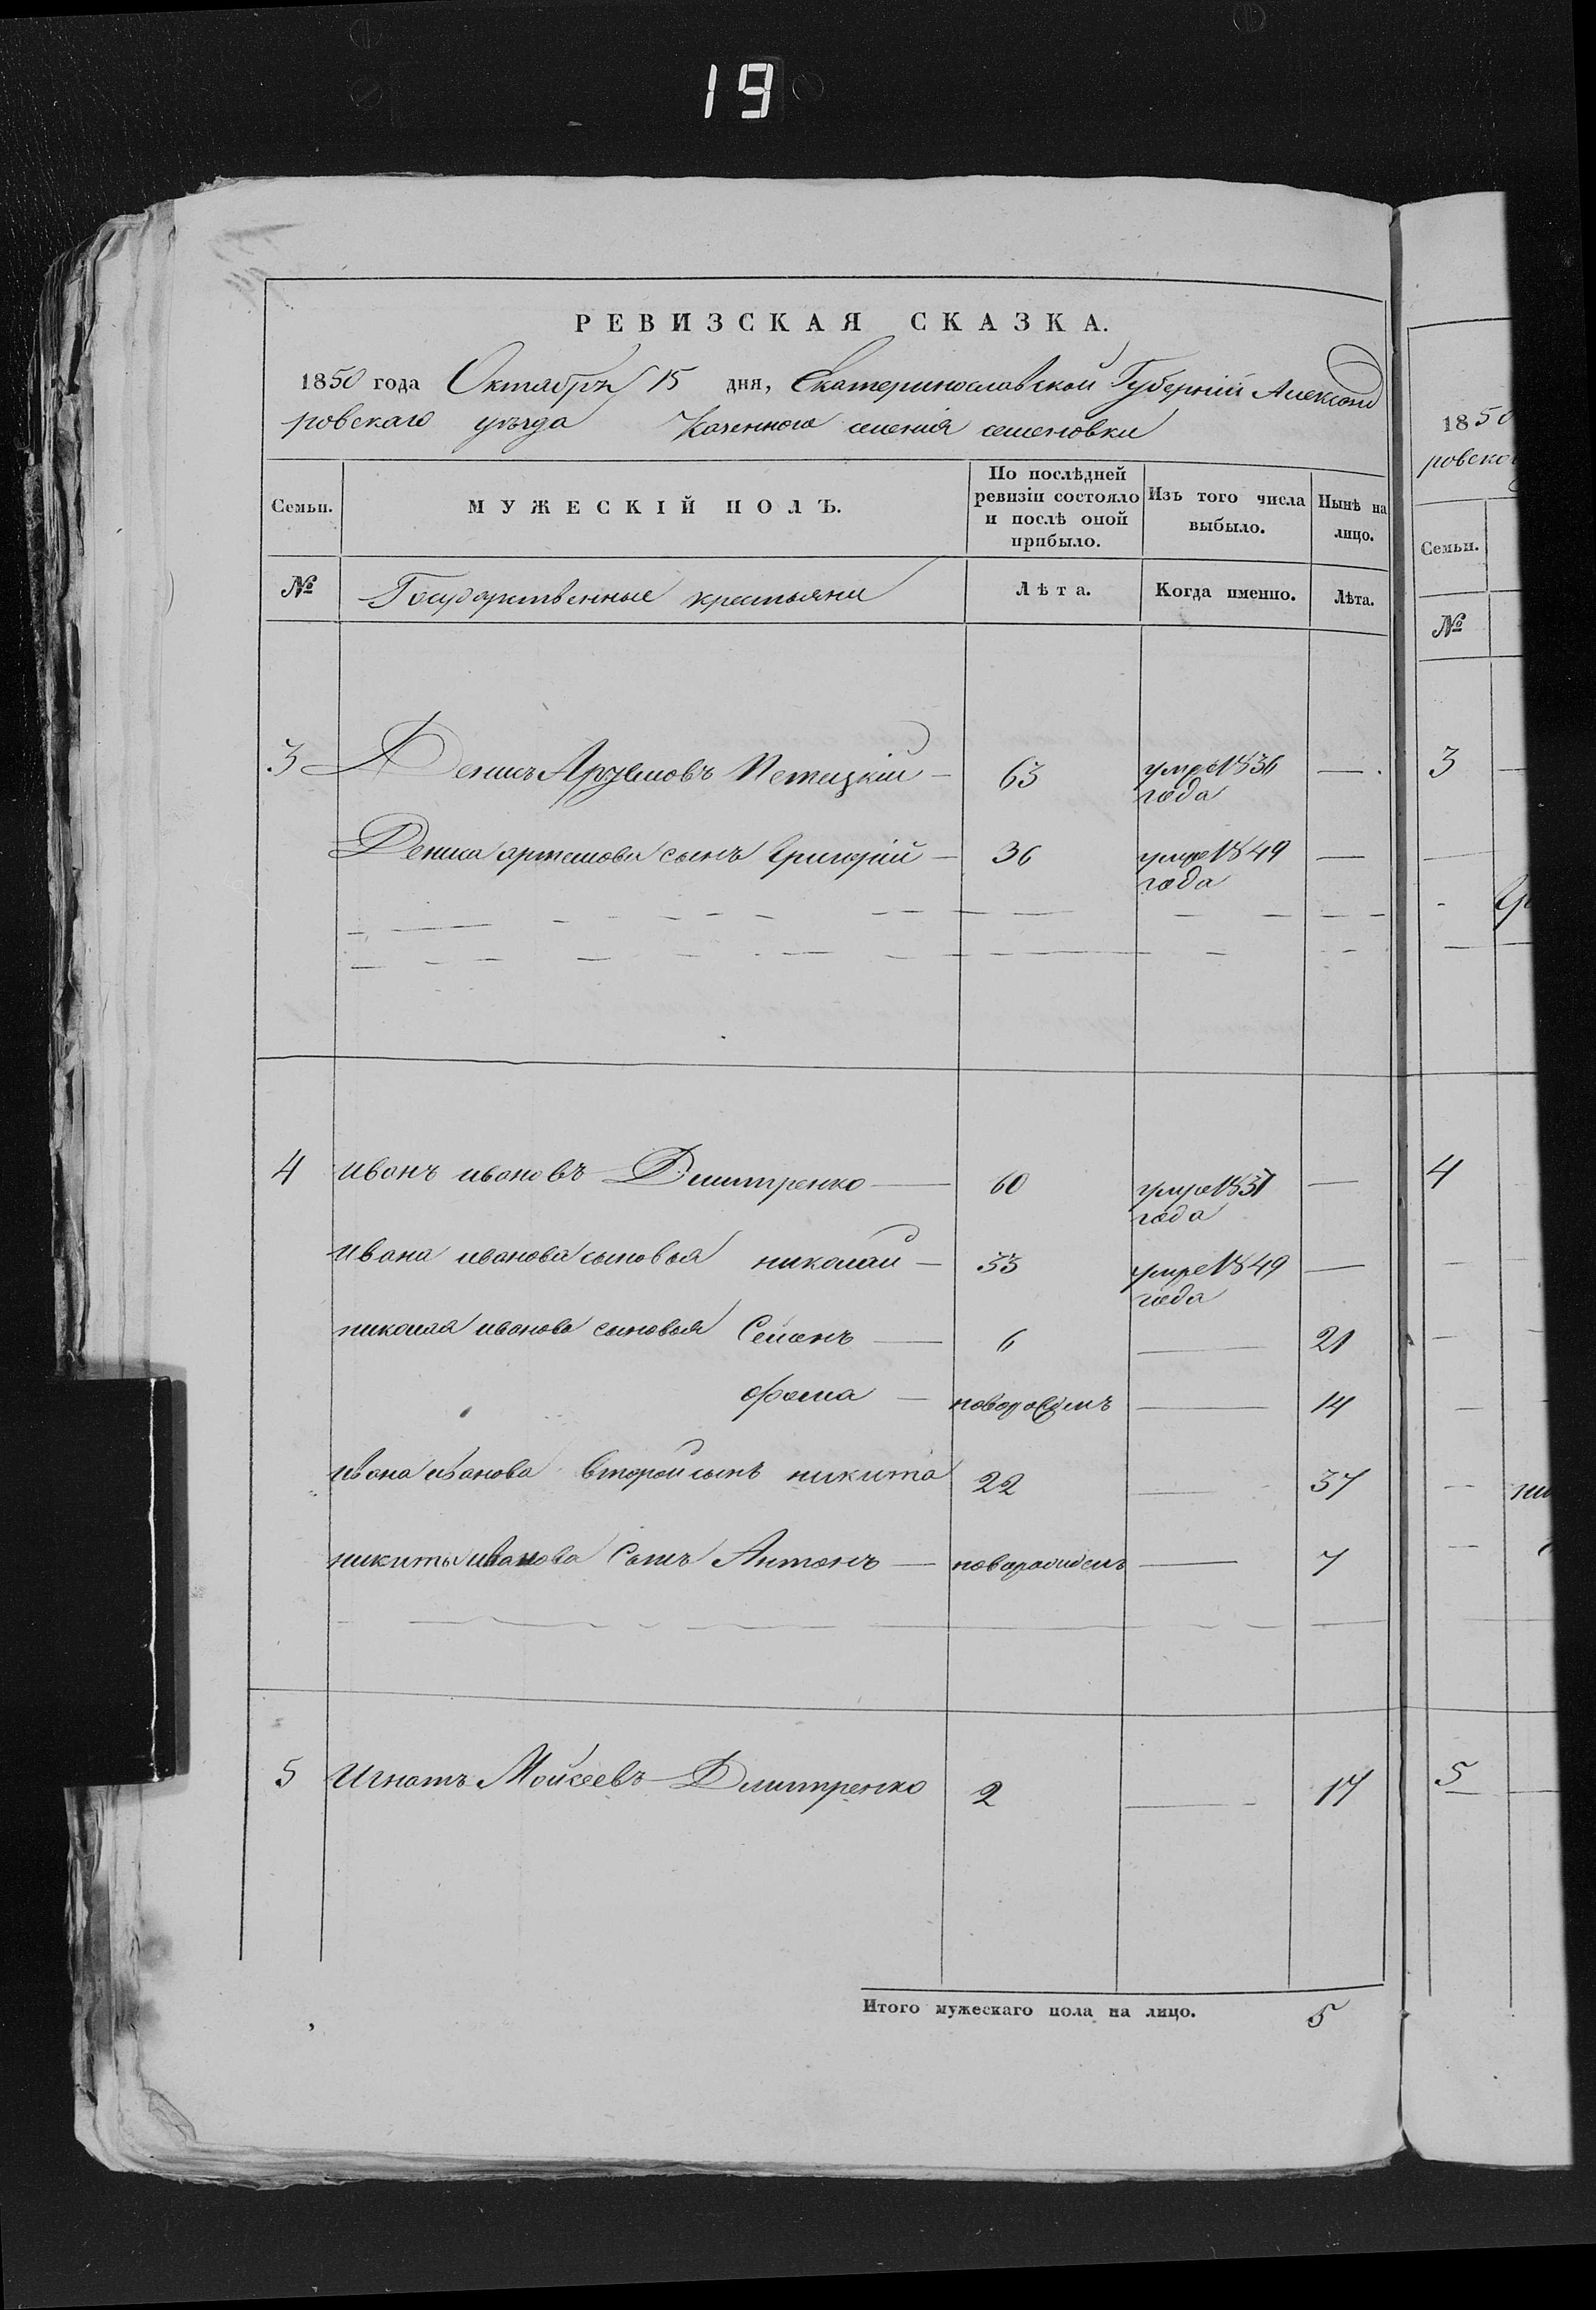 19
РЕВИЗСКАЯ СКАЗКА.
1850 года Октября 15 дня, Екатеринославской Губерніи Александ
ровскаго уѣзда Казенного селенія семеновки
Семьи. МУЖЕСКІЙ ПОЛЪ. По послѣдней ревизіи состояло и послѣ оной прибыло. Изъ того числа выбыло. Нынѣ на лицо.
№ Государственные крестьяни Лѣта. Когда именно. Лѣта.
3 Денисъ Артемовъ 63 умре 1836 года
Дениса артемова сынъ Григорій 36 умре 1849 года
4 иванъ ивановъ Дмитренко 60 умре 1837 года
ивана иванова сыновья николай 33 умре 1849 года
николая иванова сыновья Семенъ 6 21
фома новорожденъ 14
ивана иванова второй сынъ никита 22 37
никиты иванова Сынъ Антонъ новорожденъ 7
5 Игнатъ Мойсеевъ Дмитренко 2 17
Итого мужескаго пола на лицо. 5
1850
ровско
Семьи.
№
3
4
5